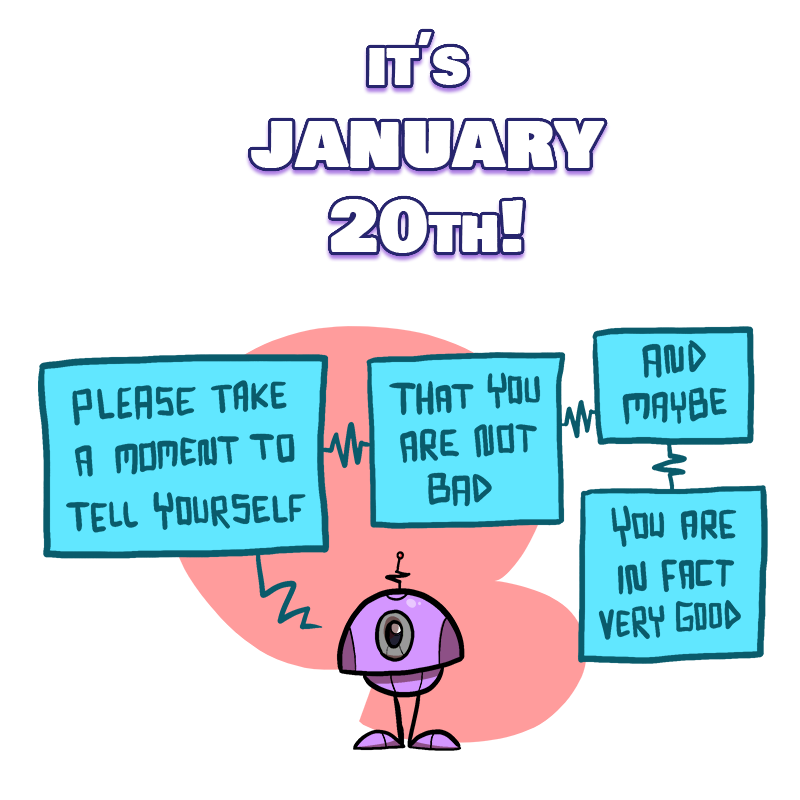 IT'S
JANUARY
20TH!
PLEASE TAKE
A MOMENT TO
TELL YOURSELF
THAT YOU
ARE NOT
BAD
AND
MAYBE
YOU ARE
IN FACT
VERY GOOD